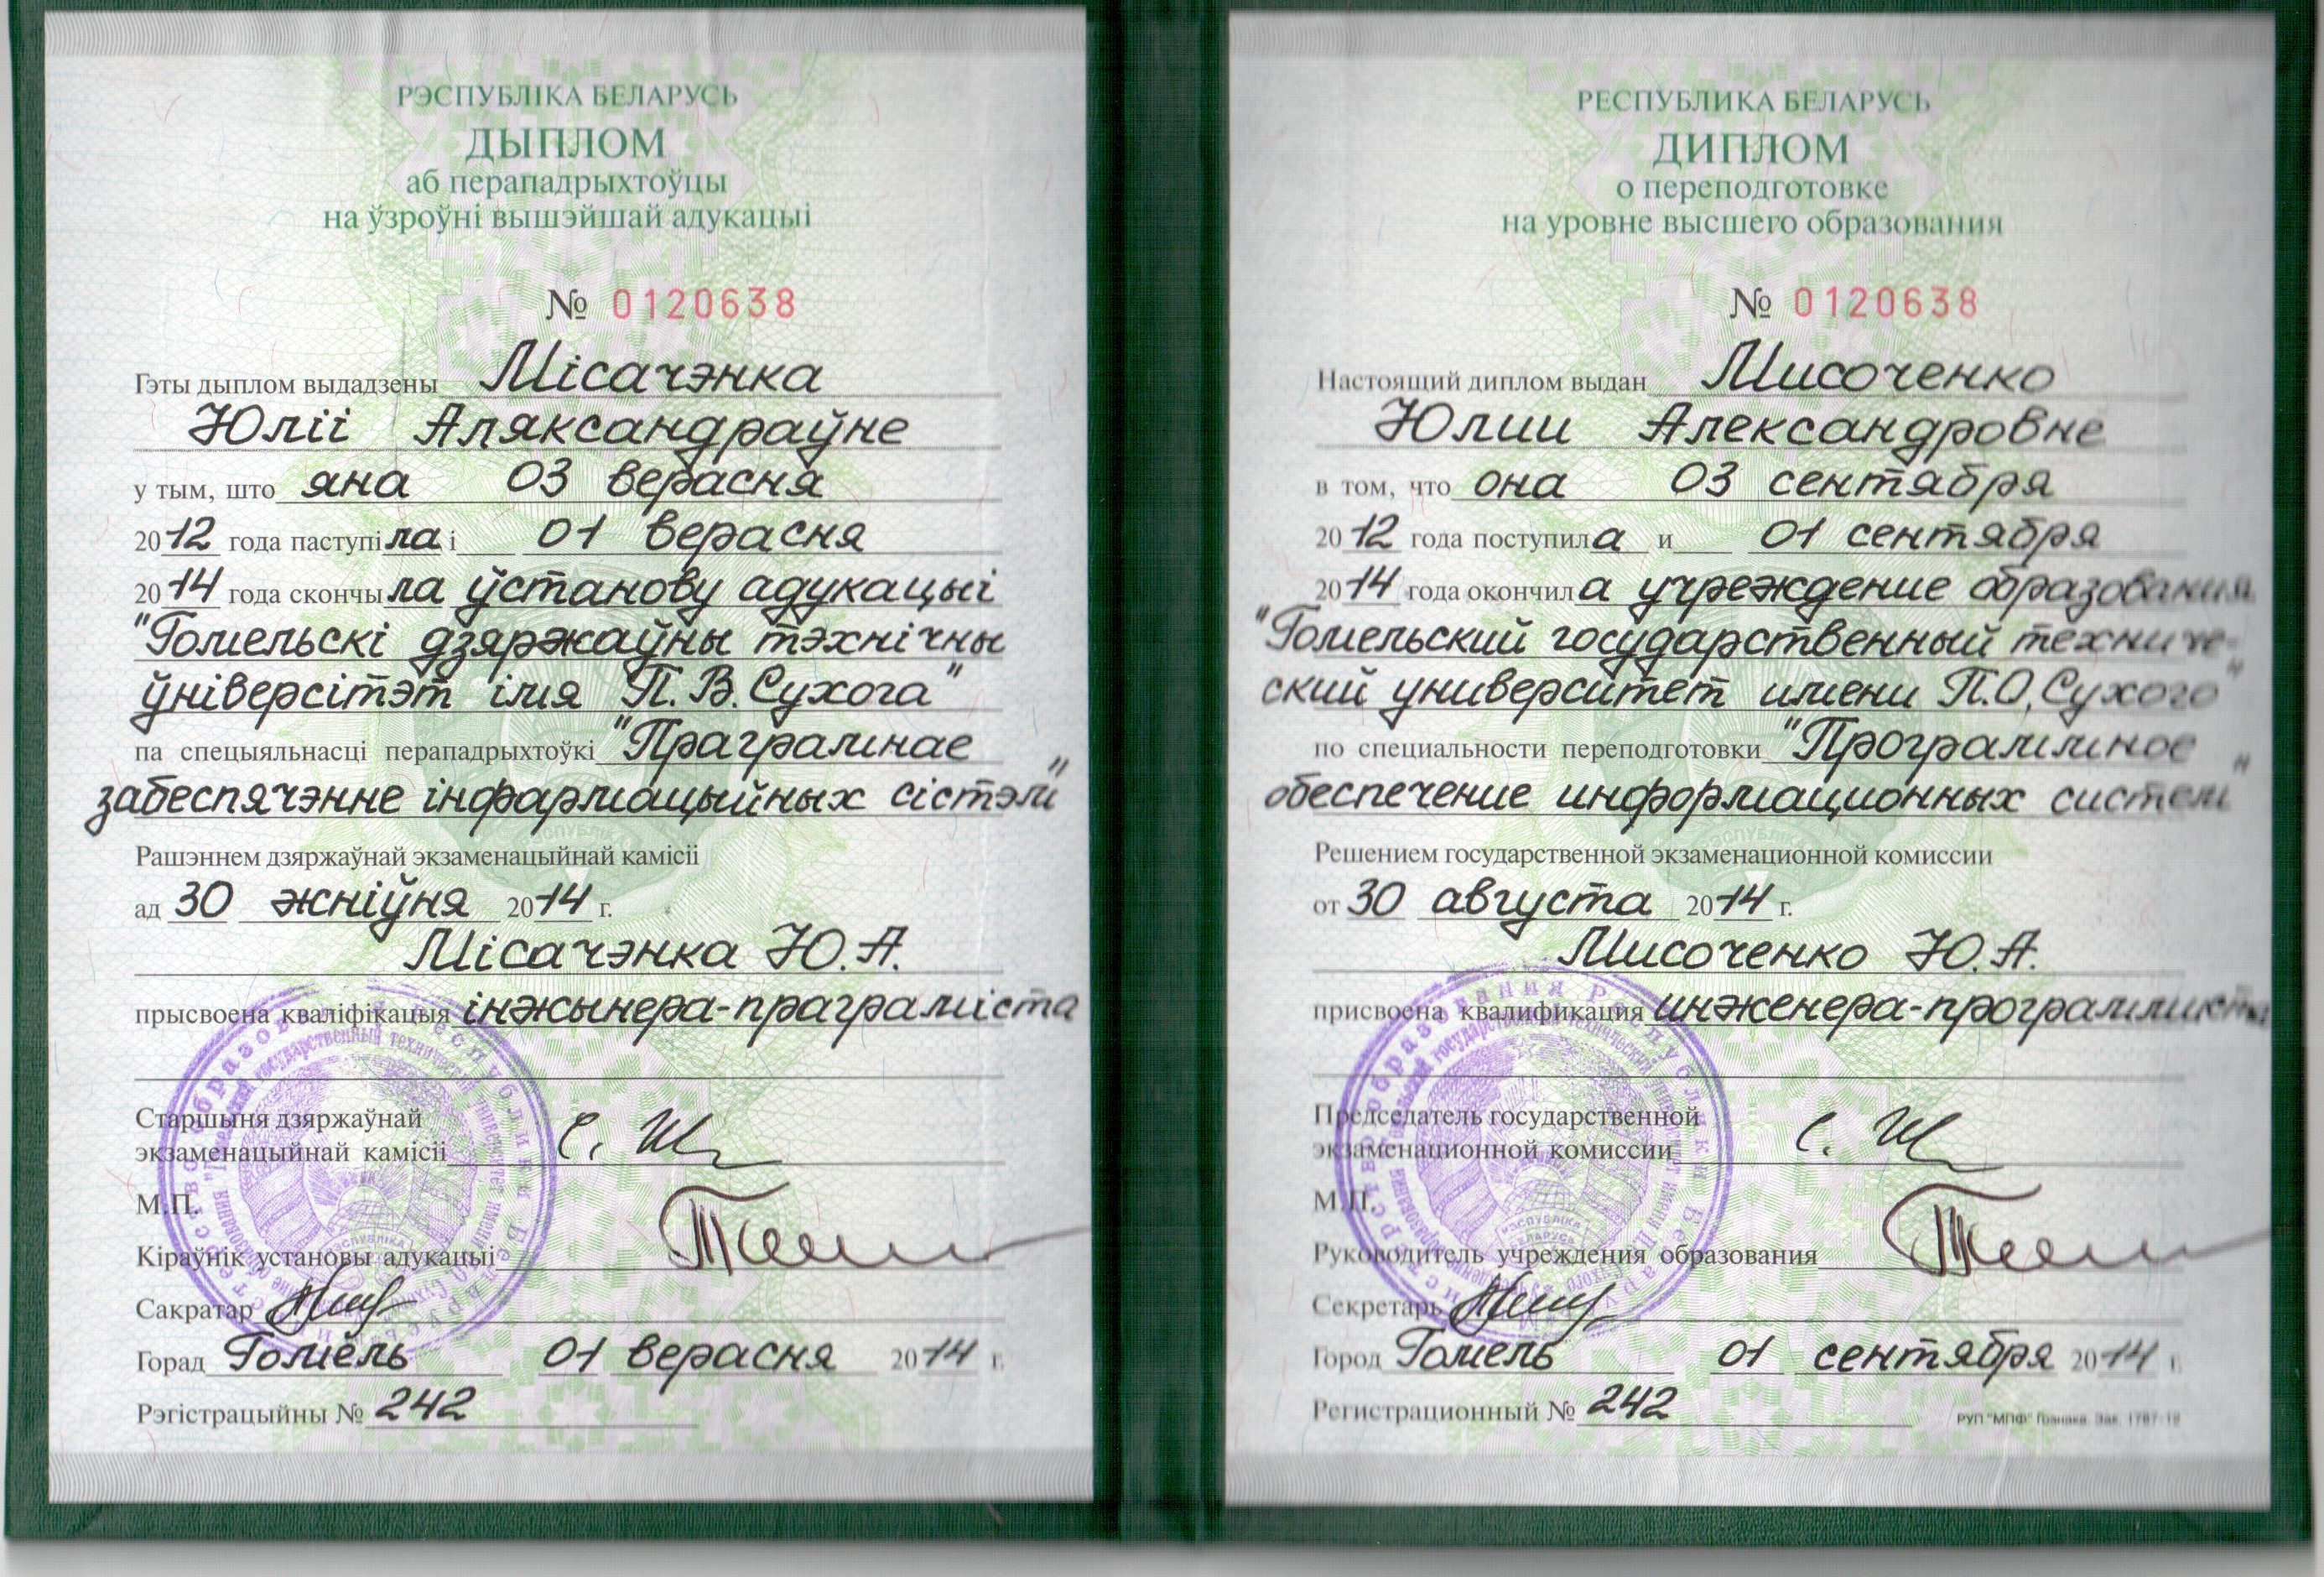 РЭСПУБЛІКА БЕЛАРУСЬ
ДЫПЛОМ
аб перападрыхтоўцы
на ўзроўні вышэйшай адукацыі
№ 0120638
Гэты дыплом выдадзены Місачэнка
Юліі Аляксандраўне
у тым, што яна 03 верасня
2012 года паступіла і 01 верасня
2014 года скончыла ўстанову адукацыі
"Гомельскі дзяржаўны тэхнічны
ўніверсітэт імя П.В.Сухога"
па спецыяльнасці перападрыхтоўкі "Праграмнае
забеспячэнне інфармацыйных сістэм"
Рашэннем дзяржаўнай экзаменацыйнай камісіі
ад 30 жніўня 2014 г.
Місачэнка Ю.А.
прысвоена кваліфікацыя інжынера-праграміста
Старшыня дзяржаўнай
экзаменацыйнай камісіі
М.П.
Кіраўнік установы адукацыі
Сакратар
Горад Гомель 01 верасня 2014 г.
Рэгістрацыйны № 242
РЕСПУБЛИКА БЕЛАРУСЬ
ДИПЛОМ
о переподготовке
на уровне высшего образования
№ 0120638
Настоящий диплом выдан Мисоченко
Юлии Александровне
в том, что она 03 сентября
2012 года поступила и 01 сентября
2014 года окончила учреждение образования
"Гомельский государственный техниче-
ский университет имени П.О.Сухого"
по специальности переподготовки "Программное
обеспечение информационных систем"
Решением государственной экзаменационной комиссии
от 30 августа 2014 г.
Мисоченко Ю.А.
присвоена квалификация инженера-программиста
Председатель государственной
экзаменационной комиссии
М.П.
Руководитель учреждения образования
Секретарь
Город Гомель 01 сентября 2014 г.
Регистрационный № 242
РУП "МПФ" Гознака. Зак. 1787-12